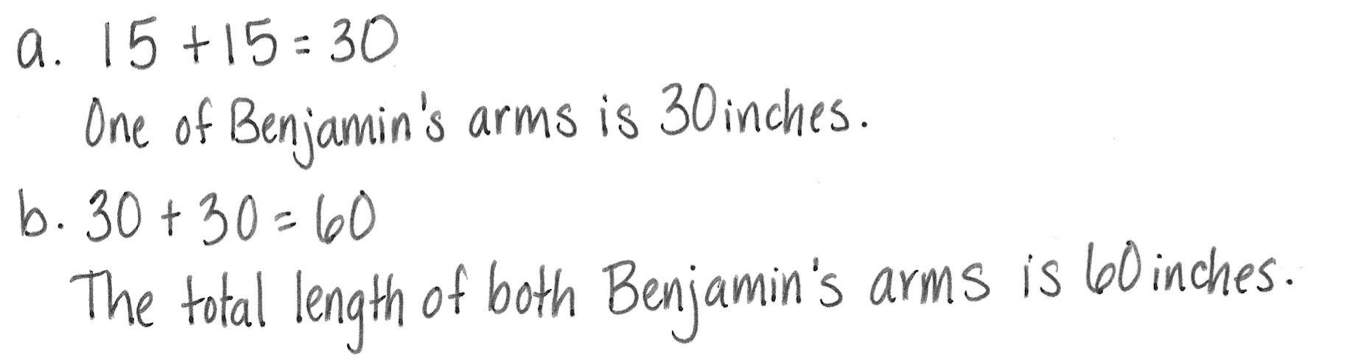 a. 15 + 15 = 30
One of Benjamin's arms is 30 inches.
b. 30 + 30 = 60
The total length of both Benjamin's arms is 60 inches.